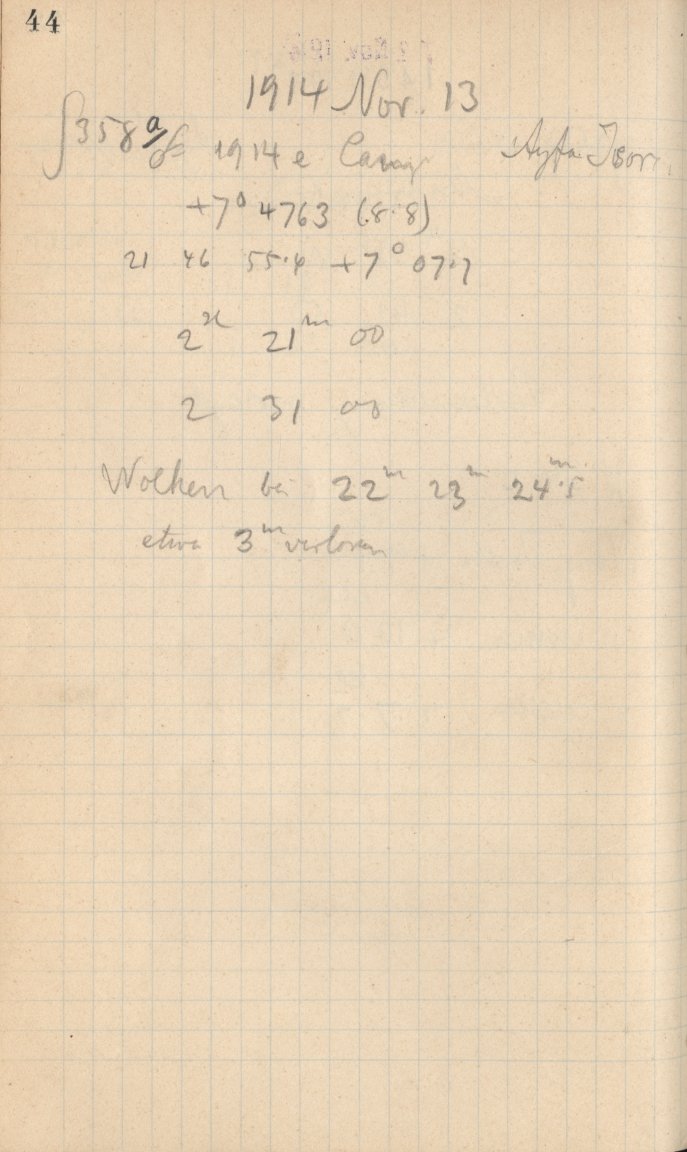 44
1914 Nov. 13
358 a 1914 e Camp Agfa Isor.
+7° 4763 (8.8)
21 46 55.4 +7° 07.7
2 21ᵐ 00
2 31 00
Wolken bei 22ᵐ 23ᵐ 24ᵐ.5
etwa 3ᵐ verloren